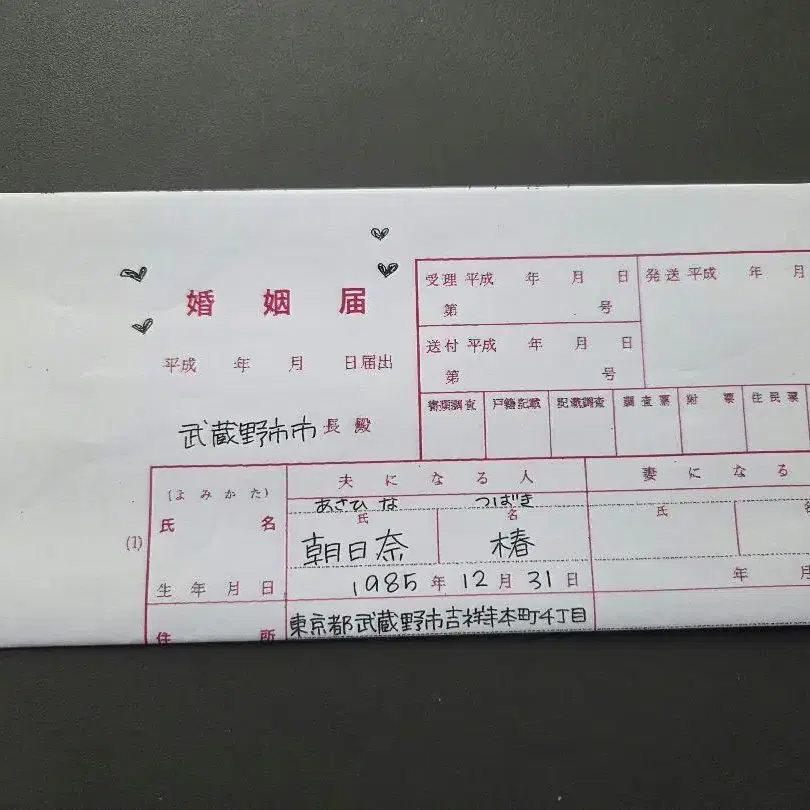 婚姻届
平成 年 月 日届出
武蔵野市市長殿
受理 平成 年 月 日
第 号
発送 平成 年 月
送付 平成 年 月 日
第 号
書類調査 戸籍記載 記載調査 調査票 附票 住民票
夫になる人 妻になる
(よみかた) あさひな つばき
氏名 氏 名 氏
(1) 朝日奈 椿
生年月日 1985年12月31日 年 月
住所 東京都武蔵野市吉祥寺本町4丁目